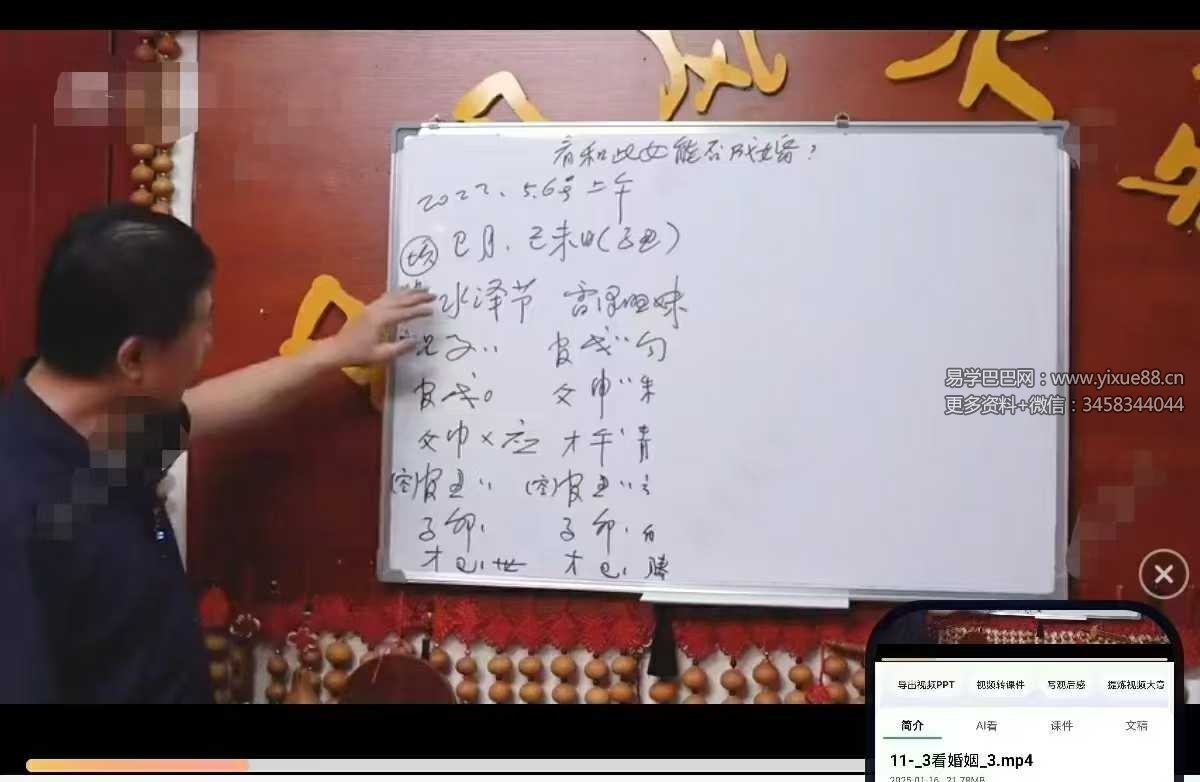 看和此女能否成婚？
2022、5.6号上午
巳月、己未日(子丑)
水泽节 雷泽归妹
兄子、、 官戌、、勾
官戌。 父申、、朱
父申×应 才午、青
(空)官丑、、 (空)官丑、、玄
子卯、 子卯、白
才巳、世 才巳、腾
易学巴巴网：www.yixue88.cn
更多资料+微信：3458344044
导出视频PPT 视频转课件 写观后感 提炼视频大意
简介 AI看 课件 文稿
11-_3看婚姻_3.mp4
2025.01.16 21.78MB